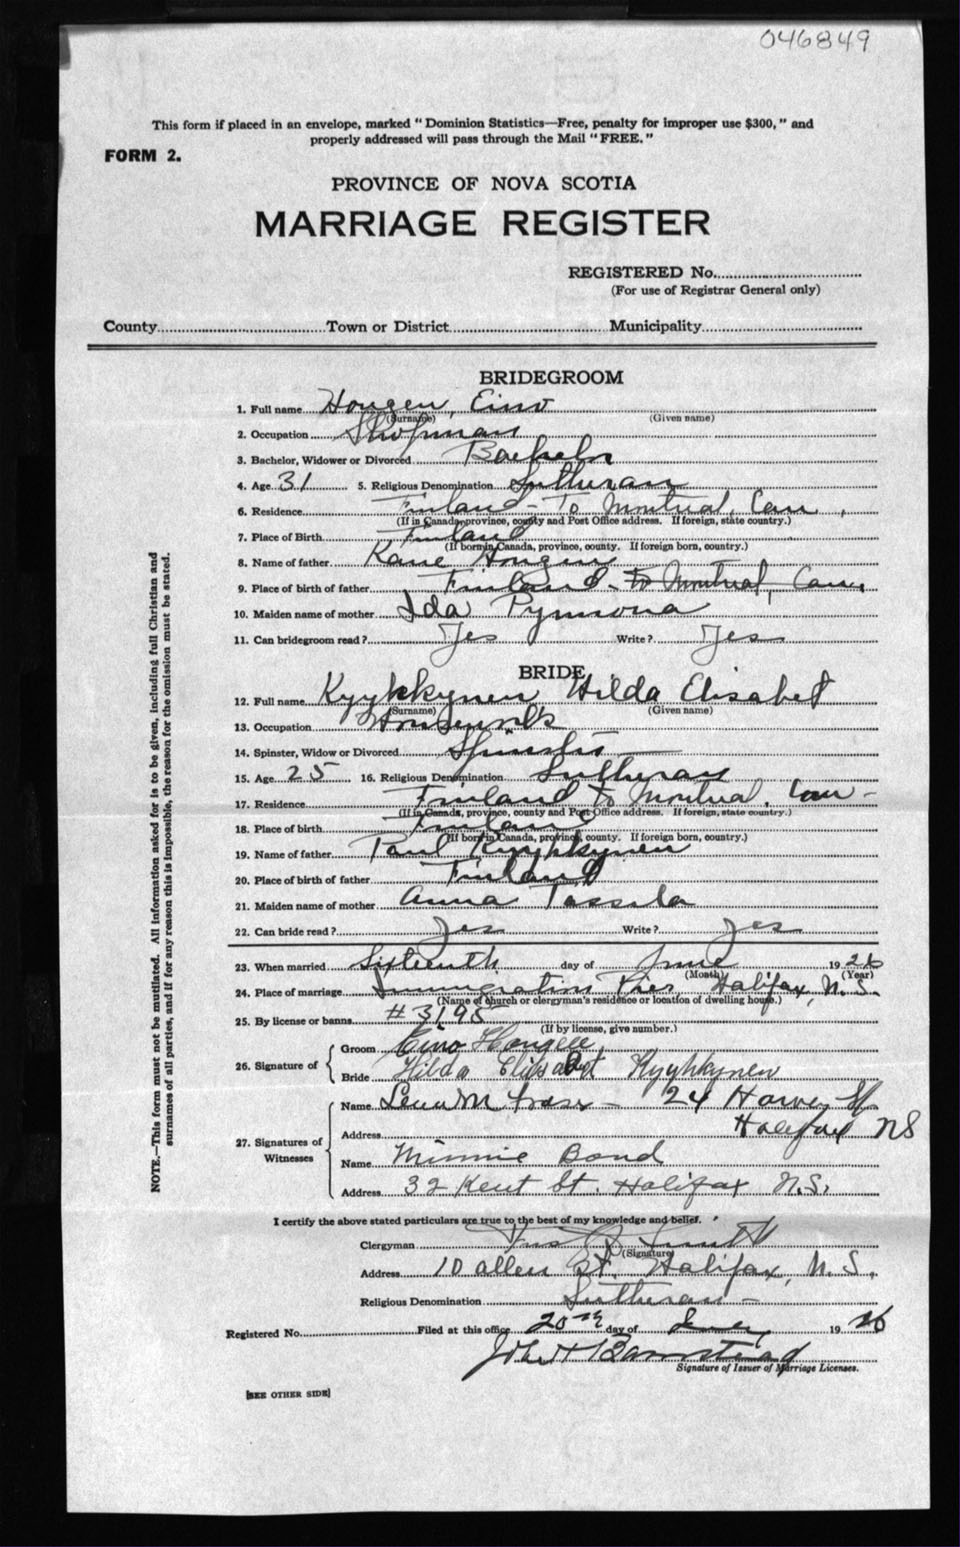 046849
This form if placed in an envelope, marked "Dominion Statistics—Free, penalty for improper use $300," and
properly addressed will pass through the Mail "FREE."
FORM 2.
PROVINCE OF NOVA SCOTIA
MARRIAGE REGISTER
REGISTERED No.
(For use of Registrar General only)
County Town or District Municipality
BRIDEGROOM
1. Full name Hougen, Eino
(Surname) (Given name)
2. Occupation Shopman
3. Bachelor, Widower or Divorced Bachelor
4. Age 31 5. Religious Denomination Lutheran
6. Residence Finland - To Montreal, Can,
(If in Canada, province, county and Post Office address. If foreign, state country.)
7. Place of Birth Finland
(If born in Canada, province, county. If foreign born, country.)
8. Name of father Kane Hougen
9. Place of birth of father Finland - to Montreal, Can,
10. Maiden name of mother Ida
11. Can bridegroom read? Yes Write? Yes
BRIDE
12. Full name Kyyhkkynen Hilda Elisabet
(Surname) (Given name)
13. Occupation Housework
14. Spinster, Widow or Divorced Spinster
15. Age 25 16. Religious Denomination Lutheran
17. Residence Finland to Montreal, Can -
(If in Canada, province, county and Post Office address. If foreign, state country.)
18. Place of birth Finland
(If born in Canada, province, county. If foreign born, country.)
19. Name of father Paul Kyyhkkynen
20. Place of birth of father Finland
21. Maiden name of mother Anna Tassila
22. Can bride read? Yes Write? Yes
23. When married Sixteenth day of June 1926
(Month) (Year)
24. Place of marriage Immigration Pier, Halifax, N.S.
(Name of church or clergyman's residence or location of dwelling house.)
25. By license or banns #3195
(If by license, give number.)
26. Signature of
Groom Eino
Bride Hilda Elisabet Kyyhkynen
27. Signatures of Witnesses
Name Lena M Fraser - 24 Harvey St
Address Halifax NS
Name Minnie Bond
Address 32 Kent St. Halifax N.S.
I certify the above stated particulars are true to the best of my knowledge and belief.
Clergyman
(Signature)
Address 10 Allen St. Halifax, N.S.
Religious Denomination Lutheran -
Registered No. Filed at this office 20th day of 19 26
John H Barnstead
Signature of Issuer of Marriage Licenses.
[SEE OTHER SIDE]
NOTE.—This form must not be mutilated. All information asked for is to be given, including full Christian and
surnames of all parties, and if for any reason this is impossible, the reason for the omission must be stated.